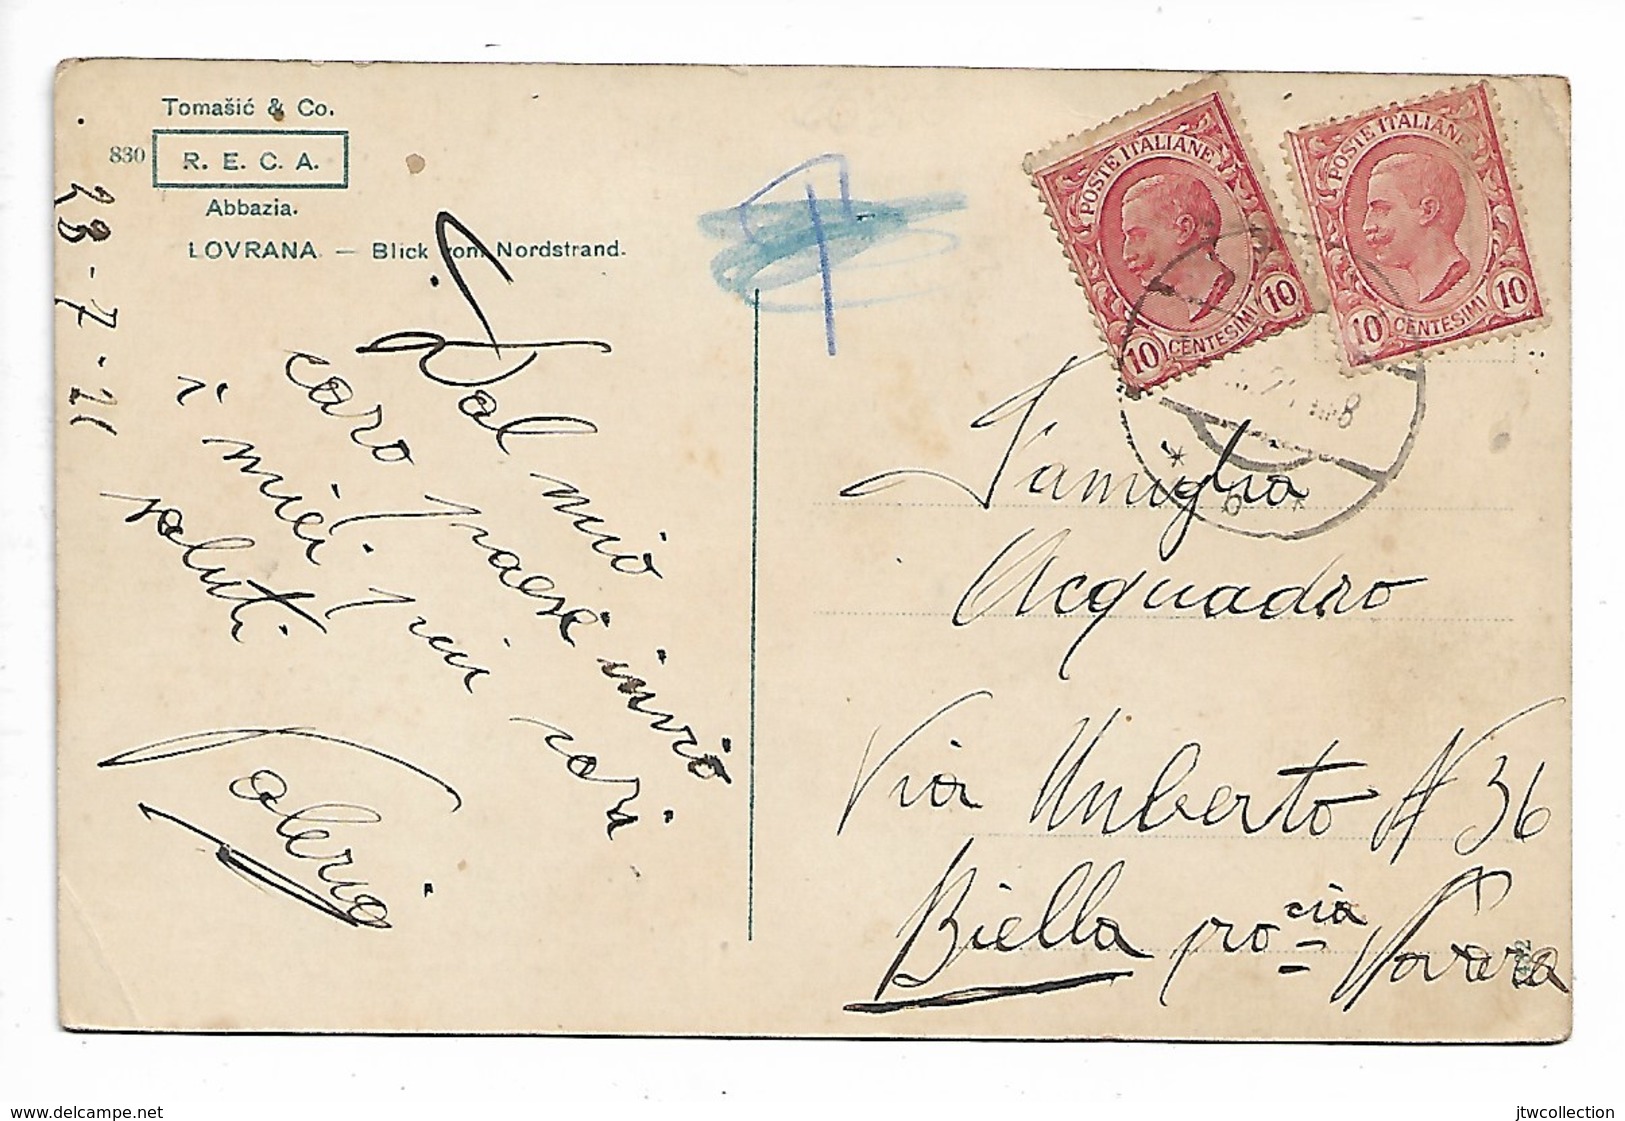 Tomašić & Co.
830
R. E. C. A.
Abbazia.
LOVRANA. — Blick vom Nordstrand.
23-7-21
Dal mio
caro paese invio
i miei più cari
saluti
Valeria
POSTE ITALIANE
10 CENTESIMI 10
POSTE ITALIANE
10 CENTESIMI 10
Famiglia
Acquadro
Via Umberto N 36
Biella pro.cia Novara
delcampe.net
jtwcollection